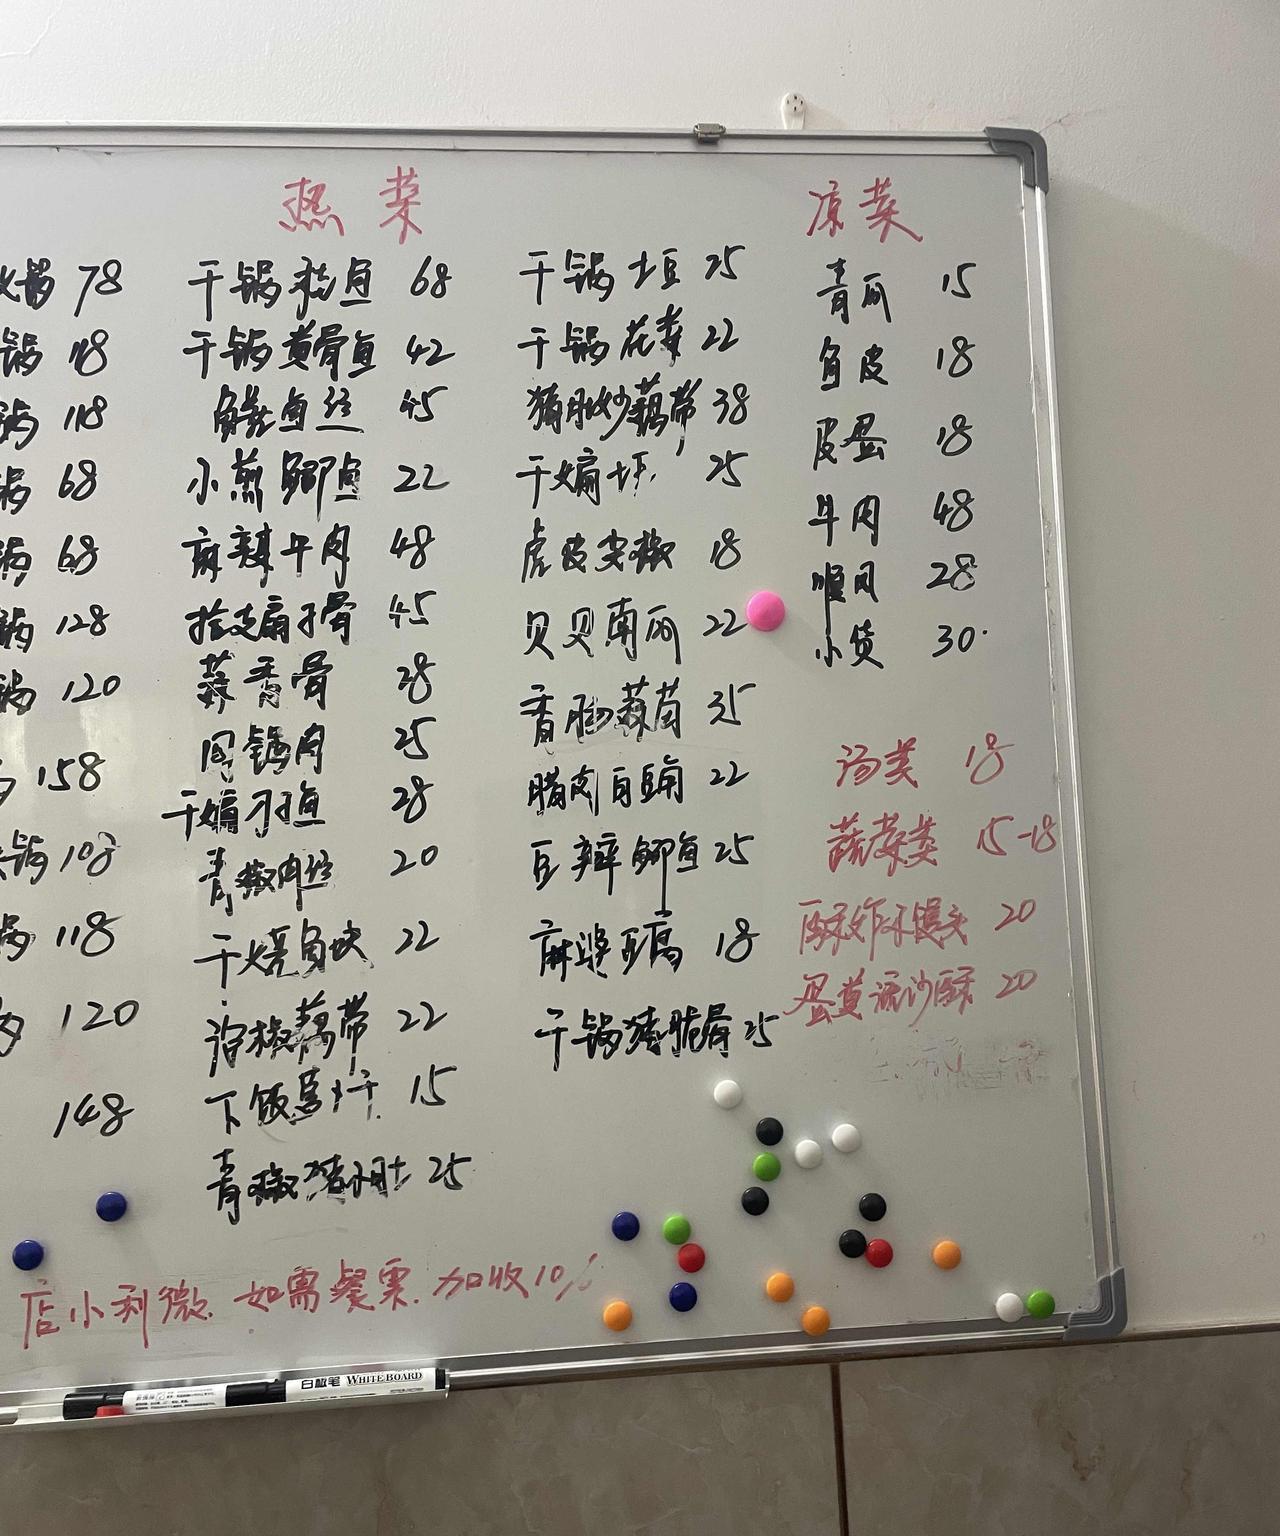 热菜
凉菜
火锅 78
锅 118
锅 118
锅 68
锅 68
锅 128
锅 120
158
锅 108
锅 118
120
148
干锅 鱼 68
干锅黄骨鱼 42
鱼丝 45
小煎鲫鱼 22
麻辣牛肉 48
扁子骨 45
蒜香骨 28
回锅肉 25
干煸刁子鱼 28
青椒肉丝 20
干烧鱼块 22
泡椒藕带 22
下饭 干 15
青椒猪肚 25
干锅土豆 25
干锅花菜 22
猪肚炒藕带 38
干煸 25
虎皮尖椒 18
贝贝南瓜 22
香肠 35
腊肉 豆角 22
豆瓣鲫鱼 25
麻婆豆腐 18
干锅猪脆骨 25
青瓜 15
鱼皮 18
皮蛋 18
牛肉 48
顺风 28
小货 30
汤类 18
蔬菜类 15-18
酥炸小馒头 20
蛋黄流沙酥 20
店小利微.如需餐票.加收10%
白板笔 WHITE BOARD